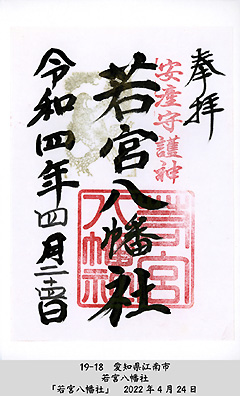 奉拝
安産守護神
若宮八幡社
若宮八幡社
令和四年四月二十四日
19-18 愛知県江南市
若宮八幡社
「若宮八幡社」 2022年4月24日